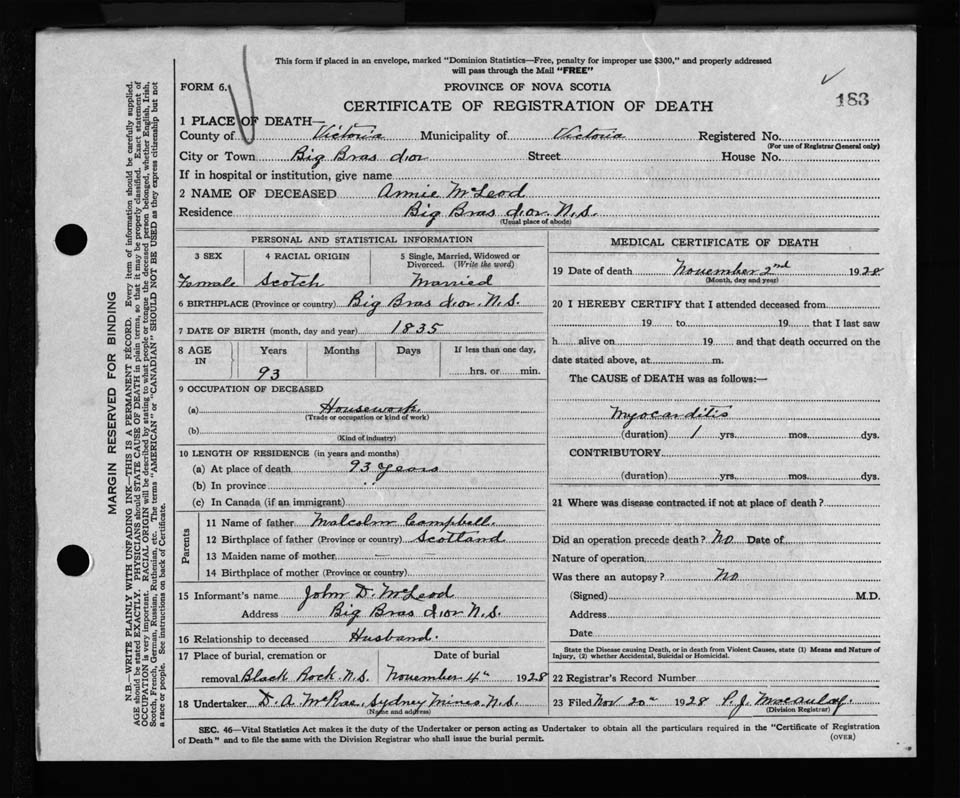 This form if placed in an envelope, marked "Dominion Statistics—Free, penalty for improper use $300," and properly addressed
will pass through the Mail "FREE"
FORM 6. PROVINCE OF NOVA SCOTIA
CERTIFICATE OF REGISTRATION OF DEATH 183
1 PLACE OF DEATH—
County of Victoria Municipality of Victoria Registered No.
(For use of Registrar General only)
City or Town Big Bras d'or Street House No.
If in hospital or institution, give name
2 NAME OF DECEASED Annie McLeod
Residence Big Bras d'or N.S.
(Usual place of abode)
PERSONAL AND STATISTICAL INFORMATION
3 SEX 4 RACIAL ORIGIN 5 Single, Married, Widowed or
Divorced. (Write the word)
Female Scotch Married
6 BIRTHPLACE (Province or country) Big Bras d'or. N.S.
7 DATE OF BIRTH (month, day and year) 1835
8 AGE IN Years Months Days If less than one day,
93 hrs. or min.
9 OCCUPATION OF DECEASED
(a) Housework
(Trade or occupation or kind of work)
(b)
(Kind of industry)
10 LENGTH OF RESIDENCE (in years and months)
(a) At place of death 93 years
(b) In province " "
(c) In Canada (if an immigrant)
Parents
11 Name of father Malcolm Campbell.
12 Birthplace of father (Province or country) Scotland
13 Maiden name of mother —
14 Birthplace of mother (Province or country)
15 Informant's name John D. McLeod
Address Big Bras d'or N.S.
16 Relationship to deceased Husband.
17 Place of burial, cremation or Date of burial
removal Black Rock. N.S. November 4th 1928
18 Undertaker D. A. McRae, Sydney Mines. N.S.
(Name and address)
MEDICAL CERTIFICATE OF DEATH
19 Date of death November 2nd 1928
(Month, day and year)
20 I HEREBY CERTIFY that I attended deceased from
19 to 19 that I last saw
h alive on 19 and that death occurred on the
date stated above, at m.
The CAUSE of DEATH was as follows:—
Myocarditis
(duration) 1 yrs. mos. dys.
CONTRIBUTORY
(duration) yrs. mos. dys.
21 Where was disease contracted if not at place of death?
Did an operation precede death? No Date of
Nature of operation
Was there an autopsy? No
(Signed) M.D.
Address
Date
State the Disease causing Death, or in death from Violent Causes, state (1) Means and Nature of
Injury, (2) whether Accidental, Suicidal or Homicidal.
22 Registrar's Record Number
23 Filed Nov 20th 1928 P. J. Macaulay.
(Division Registrar)
SEC. 46—Vital Statistics Act makes it the duty of the Undertaker or person acting as Undertaker to obtain all the particulars required in the "Certificate of Registration
of Death" and to file the same with the Division Registrar who shall issue the burial permit. (OVER)
MARGIN RESERVED FOR BINDING
N.B.—WRITE PLAINLY WITH UNFADING INK—THIS IS A PERMANENT RECORD. Every item of information should be carefully supplied.
AGE should be stated EXACTLY. PHYSICIANS should STATE CAUSE OF DEATH in plain terms, so that it may be properly classified. Exact statement of
OCCUPATION is very important. RACIAL ORIGIN will be described by stating to what people or tongue the deceased person belonged, whether English, Irish,
Scotch, French, German, Russian, Ruthenian, etc. The terms "AMERICAN" or "CANADIAN" SHOULD NOT BE USED as they express citizenship but not
a race or people. See instructions on back of Certificate.